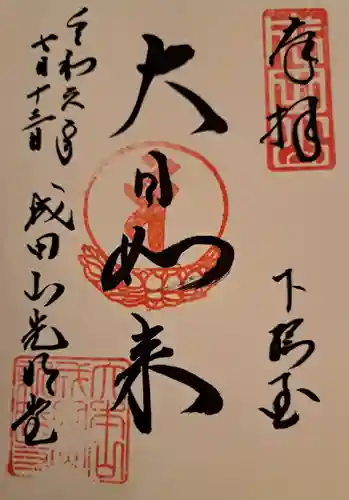 奉拝
下総國
大日如来
成田山光明堂
令和元年
七月十三日